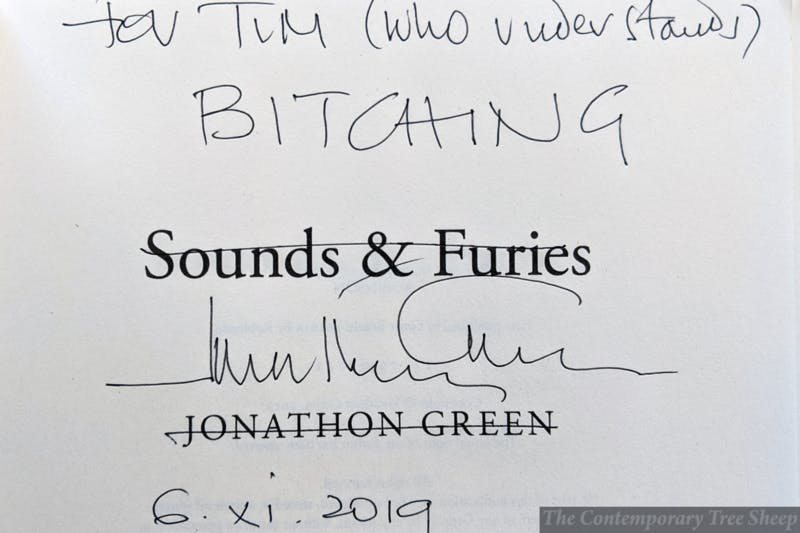 for TIM (who understands)
BITCHING
Sounds & Furies
Jonathon Green
JONATHON GREEN
6. xi. 2019
The Contemporary Tree Sheep